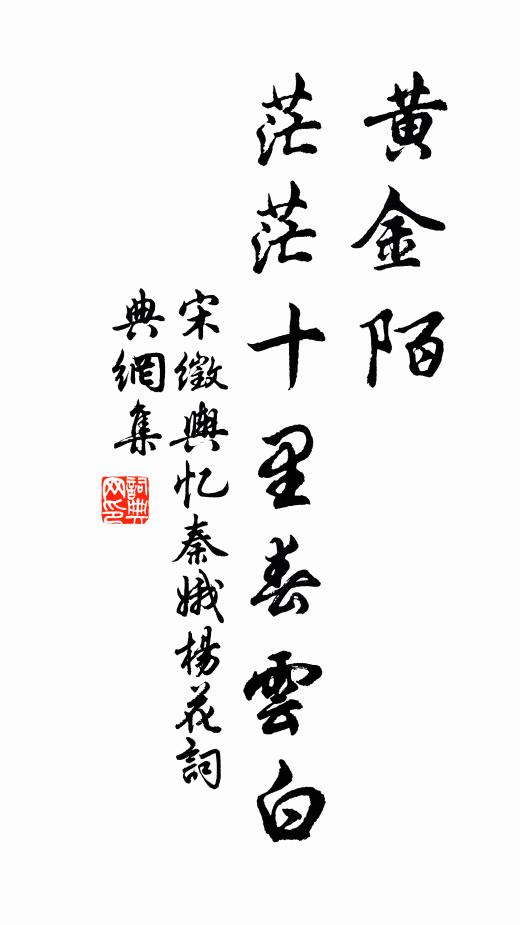 黄金陌
茫茫十里春雲白
宋徵輿忆秦娥楊花詞
典網集
詞典
网印